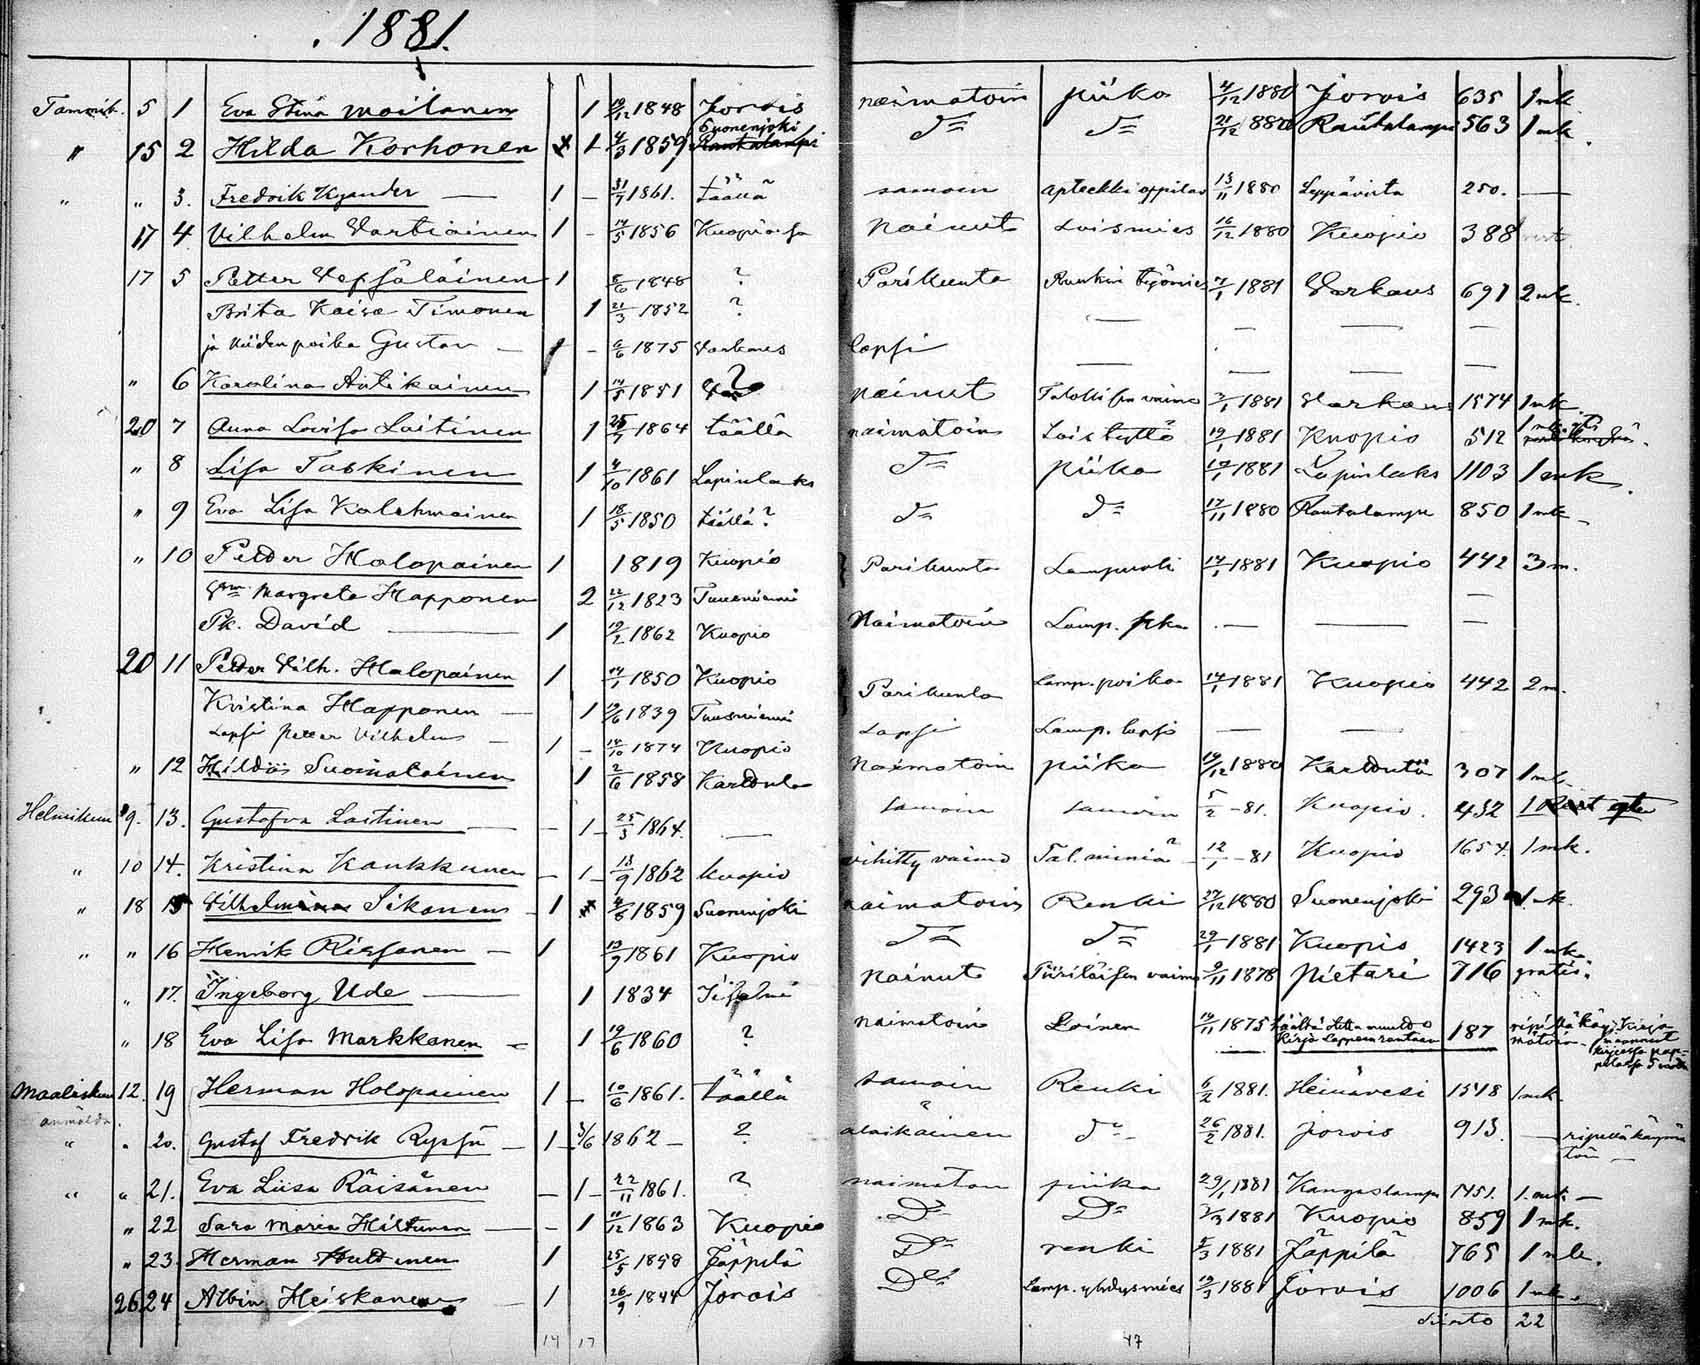 1881.
Tammik. 5 1 Eva Stina Moilanen 1 1848 Jorois naimatoin piika 1880 Jorois 635 1 mk
Suonenjoki
" 15 2 Hilda Korhonen 1 4/3 1859 Rautalampi Do Do 21/12 1880 Rautalampi 563 1 mk.
" " 3. Fredrik Kyander — 1 – 1861. täällä samoin apteekki oppilas 13/11 1880 Leppävirta 250. —
17 4. Vilhelm Vartiainen 1 - 1856 Kuopiossa Nainut Loismies 16/12 1880 Kuopio 388
17 5 Petter Vepsäläinen 1 1848 ? Parikunta Ruukin työmies 1881 Varkaus 691 2 mk.
Brita Kaisa Timonen 1 21/3 1852 ? — — — —
ja heidän poika Gustav — 1 – 6/6 1875 Varkaus lapsi — — —
" 6 Karolina Antikainen 1 1851 ? nainut Talollisen vaimo 1881 Varkaus 1574 1 mk.
20 7 Anna Lovisa Laitinen 1 1864 täällä naimatoin Loistyttö 19/1 1881 Kuopio 512
" 8 Lisa Taskinen 1 4/10 1861 Lapinlaks Do piika 1881 Lapinlaks 1103 1 mk.
" 9 Eva Lisa Kolehmainen 1 18/5 1850 täällä? Do Do 17/11 1880 Rautalampi 850 1 mk
" 10 Petter Holopainen 1 1819 Kuopio Parikunta Lampuoti 1881 Kuopio 442 3 m.
Vm Margreta Happonen 2 22/12 1823 Tuusniemi —
Pk. David — 1 19/2 1862 Kuopio Naimatoin Lamp. pka — — —
20 11 Petter Vilh. Holopainen 1 1850 Kuopio Parikunta Lamp. poika 1881 Kuopio 442 2 m.
Kristina Happonen — 1 1839 Tuusniemi
Lapsi Petter Vilhelm — 1 – 1874 Kuopio Lapsi Lamp. lapsi — — —
" 12 Hilda Suomalainen 1 2/6 1858 Karttula Naimatoin piika 19/12 1880 Karttula 307 1 mk
Helmikuu 9. 13. Gustafva Laitinen — 1 – 25/3 1864. — samoin samoin 5/2 -81. Kuopio. 432
" 10 14. Kristina Kaukkunen – 1 – 13/9 1862 Kuopio vihitty vaimo Tal. miniä 12/1 -81 Kuopio 1654. 1 mk.
" 18 15 Vilhelm Sikanen 1 1859 Suonenjoki naimatoin Renki 27/12 1880 Suonenjoki 293 1 mk.
" " 16 Henrik Rissanen — 1 13/9 1861 Kuopio Do Do 29/1 1881 Kuopio 1423 1 mk.
" 17. Ingeborg Ude — 1 1834 Iisalmi Nainut 9/11 1878 Pietari 716 gratis.
" 18 Eva Lisa Markkanen — 1 19/6 1860 ? naimatoin Loinen 19/11 1875 187
Maaliskuu 12. 19 Herman Holopainen 1 – 10/6 1861. täällä samoin Renki 6/2 1881. Heinävesi 1518 1 mk.
anmälda
" " 20. Gustaf Fredrik Ryssä – 1 – 3/6 1862 – ? alaikäinen Do 26/2 1881. Jorois 913. — ripillä käymä
töin —
" " 21. Eva Liisa Räisänen – 1 – 22/11 1861. ? naimaton piika 29/1 1881 Kangaslampi 1451. 1 mk. —
" 22 Sara Maria Hiltunen — – 1 11/12 1863 Kuopio Do Do 1881 Kuopio 859 1 mk.
" 23. Herman 1 25/5 1858 Jäppilä Do renki 5/3 1881 Jäppilä 765 1 mk.
26 24 Albin Heiskanen — 1 26/9 1844 Jorois Do Lamp. yhdysmies 19/3 1881 Jorois 1006 1 mk.
Siirto 22
14 17 47